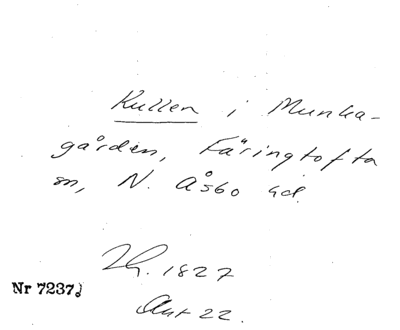 Kullen i Munka-
gården, Färingtofta
sn, N. Åsbo hd.
1827
Nr 7237
Akt 22.